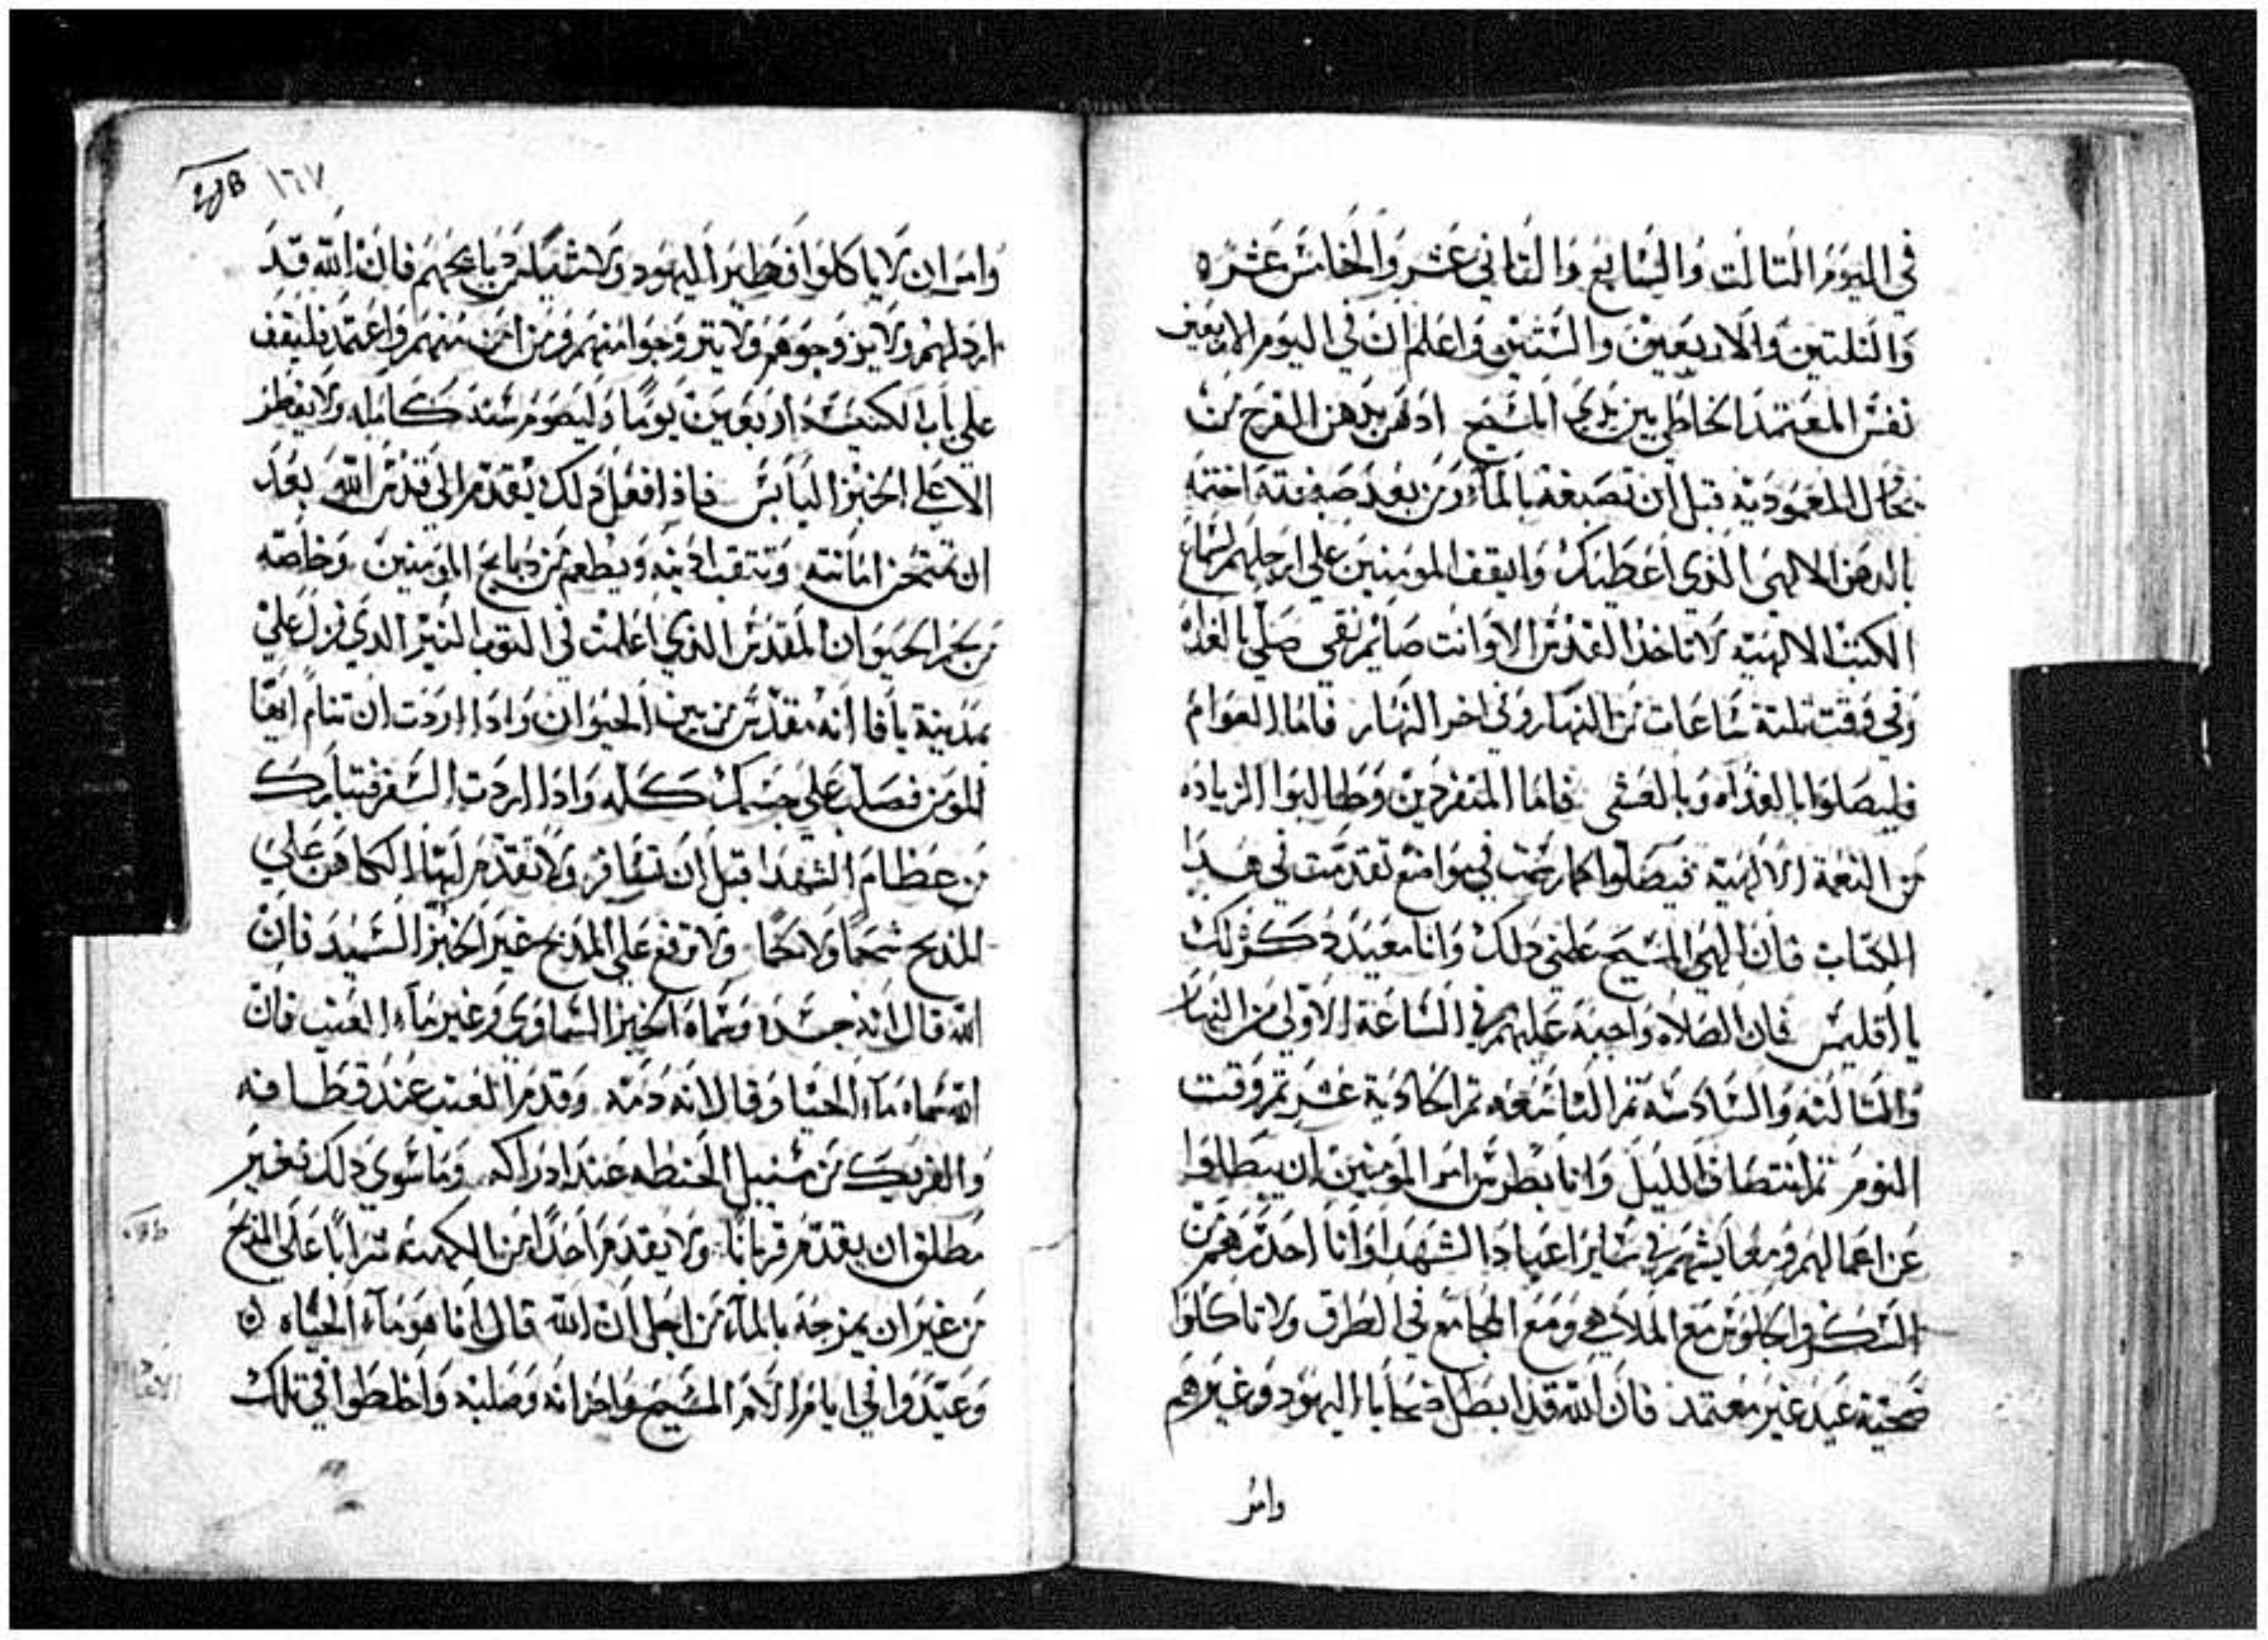 في اليوم التالت والسابع والتاني عشر والخامس عشره
والتلتين والاربعين والستين واعلم ان في اليوم الاربعين
نفس المعتمد الخاطي بين يدي المسيح ادهن بدهن الفرح من
بحال المعمودية قبل ان تصبغه بالماء ومن بعد صبغته اختمه
بالدهن الالهي الذي اعطيتك وايقف المومنين على ارجلهم لسماع
الكتب الالهيه لا تاخذ القدس الا وانت صايم نقي صلي بالغداه
وفي وقت تلتة ساعات من النهار وفي اخر النهار فاما العوام
فليصلوا بالغداه وبالعشي فاما المنفردين وطالبوا الزياده
من النعمة الالهية فيصلوا كما رتبت في مواضع تقدمت في هدا
الكتاب فان الهي المسيح علمني دلك وانا معيد دكر لك
يا اقليمس فان الصلاه واجبة عليهم في الساعة الاولى من النهار
والتالته والسادسه تم التاسعه تم الحادية عشر تم وقت
النوم تم انتصاف الليل وانا بطرس امر المومنين ان يبطلوا
عن اعمالهم ومعايشهم في ساير اعياد الشهدا وانا احدرهم من
السكر والجلوس مع الملاهي ومع المجامع في الطرق ولا تاكلوا
ضحية عيد غير معتمد فان الله قد ابطل ضحايا اليهود وغيرهم
وامر
١٦٧
وامر ان لا ياكلوا فطير اليهود ولا من دبايحهم فان الله قد
اردلهم ولا يزوجوهم ولا يتزوجوا منهم ومن امن منهم واعتمد فليقف
على باب الكنيسة اربعين يومًا وليصوم سنه كامله ولا يفطر
الا على الخبز اليابس فاذا فعل دلك يقدم الى قدس الله بعد
ان تمتحن امانته وتتقب ادنه ويطعم من دبايح المومنين وخاصه
من لحم الحيوان المقدس الذي اعلمت في التوب النير الدي نزل علي
بمدينة يافا انه مقدس من بين الحيوان وادا اردت ان تنام ايها
المومن فصلب على جسمك كله وادا اردت السفر فتبارك
من عظام الشهدا قبل ان تسافر ولا تقدم ايها الكاهن على
المدبح شحمًا ولا لحمًا ولا ترفع على المدبح غير الخبز السميد فان
الله قال انه جسده وسماه الخبز السماوي وغير ماء العنب فان
الله سماه ماء الحيا وقال انه دمه وقدم العنب عند قطافه
والفريك من سنبل الحنطه عند ادراكه وما سوي دلك فغير
مطلق ان يقدم قربانًا ولا يقدم احدًا من الكهنه شرابًا على المدبح
من غير ان يمزجه بالماء من اجل ان الله قال انا هو ماء الحياه
وعيدوا في ايام الام المسيح واحزانه وصلبه واخلطوا في تلك